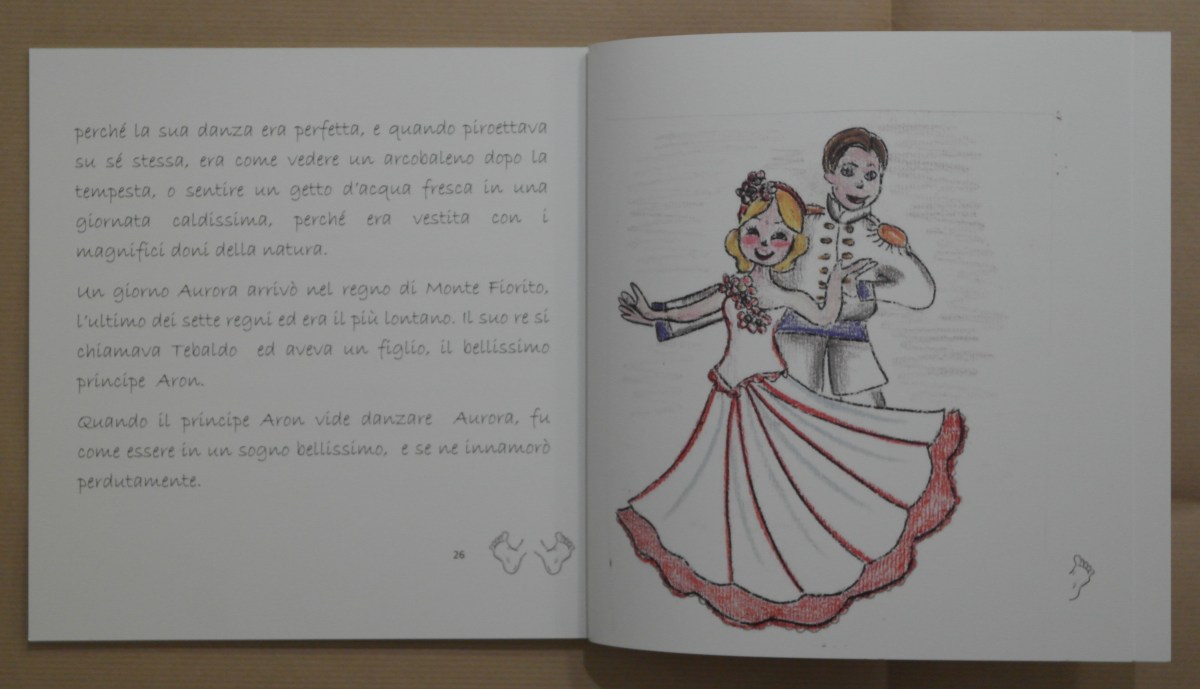 perché la sua danza era perfetta, e quando piroettava
su sé stessa, era come vedere un arcobaleno dopo la
tempesta, o sentire un getto d'acqua fresca in una
giornata caldissima, perché era vestita con i
magnifici doni della natura.
Un giorno Aurora arrivò nel regno di Monte Fiorito,
l'ultimo dei sette regni ed era il più lontano. Il suo re si
chiamava Tebaldo ed aveva un figlio, il bellissimo
principe Aron.
Quando il principe Aron vide danzare Aurora, fu
come essere in un sogno bellissimo, e se ne innamorò
perdutamente.
26